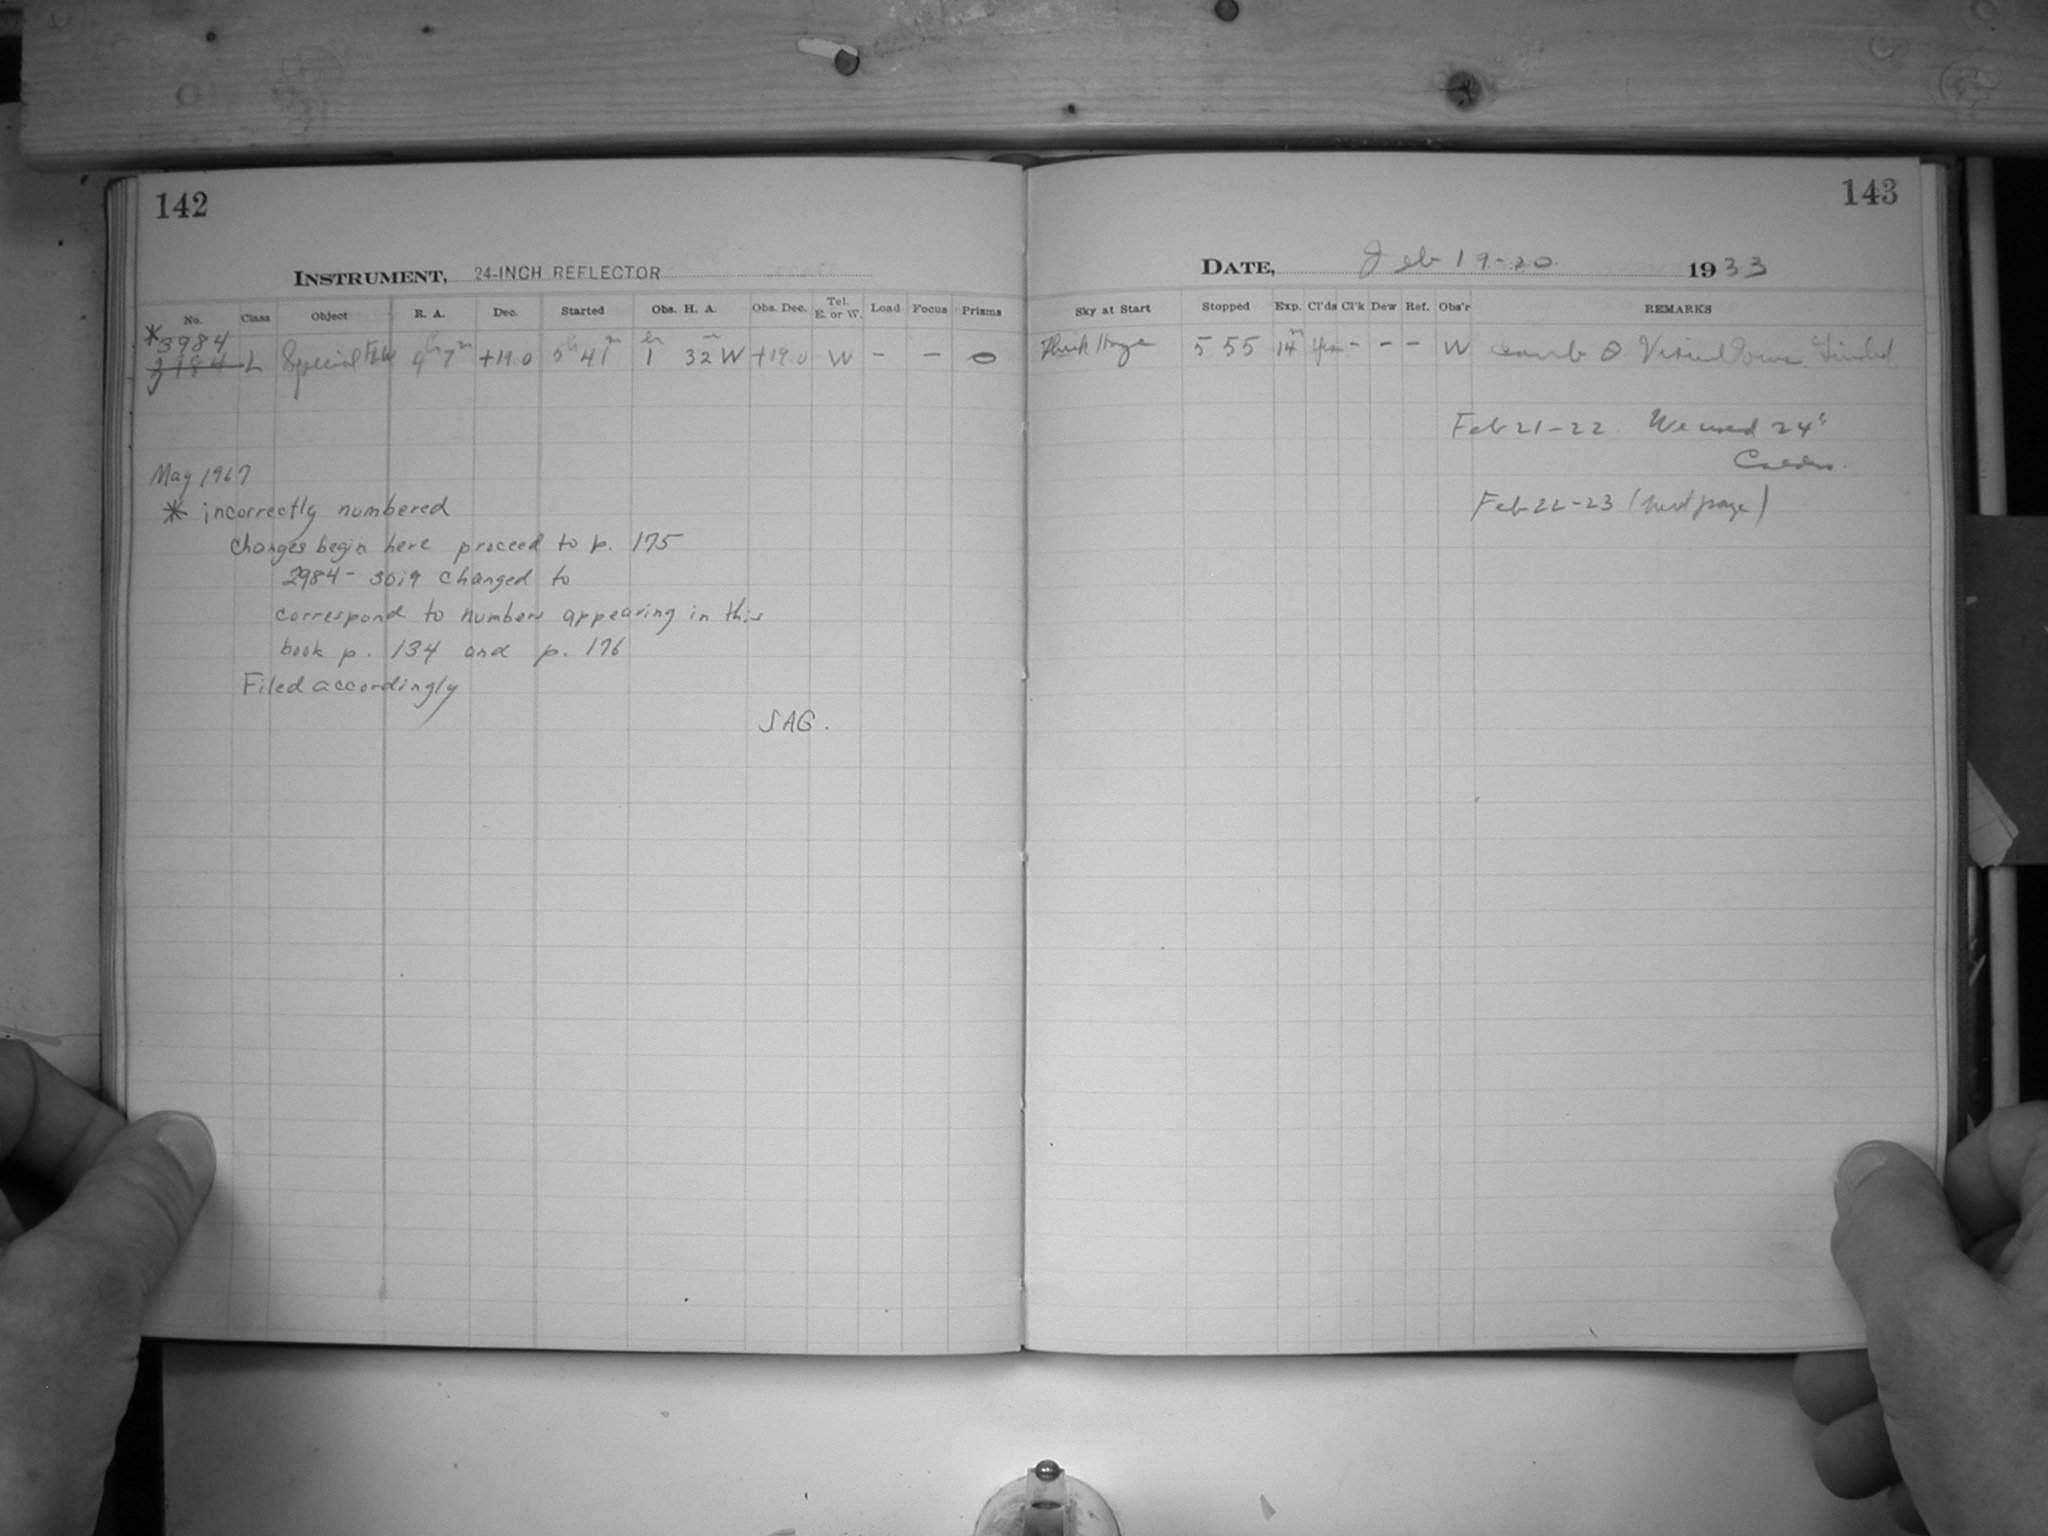 142
INSTRUMENT, 24-INCH REFLECTOR
No. Class Object R. A. Dec. Started Obs. H. A. Obs. Dec. Tel. E. or W. Load Focus Prisms
*3984
2984 L Special 4h 7m +19.0 5h 41m 1h 32m W +19.0 W - - 0
May 1967
* incorrectly numbered
changes begin here proceed to p. 175
2984 - 3019 changed to
correspond to numbers appearing in this
book p. 134 and p. 176
Filed accordingly
SAG.
143
DATE, Feb 19-20 1933
Sky at Start Stopped Exp. Cl'ds Cl'k Dew Ref. Obs'r REMARKS
Thick Haze 5 55 14m Yes - - - W
Feb 21-22 We used 24"
Calder.
Feb 22-23 (next page)